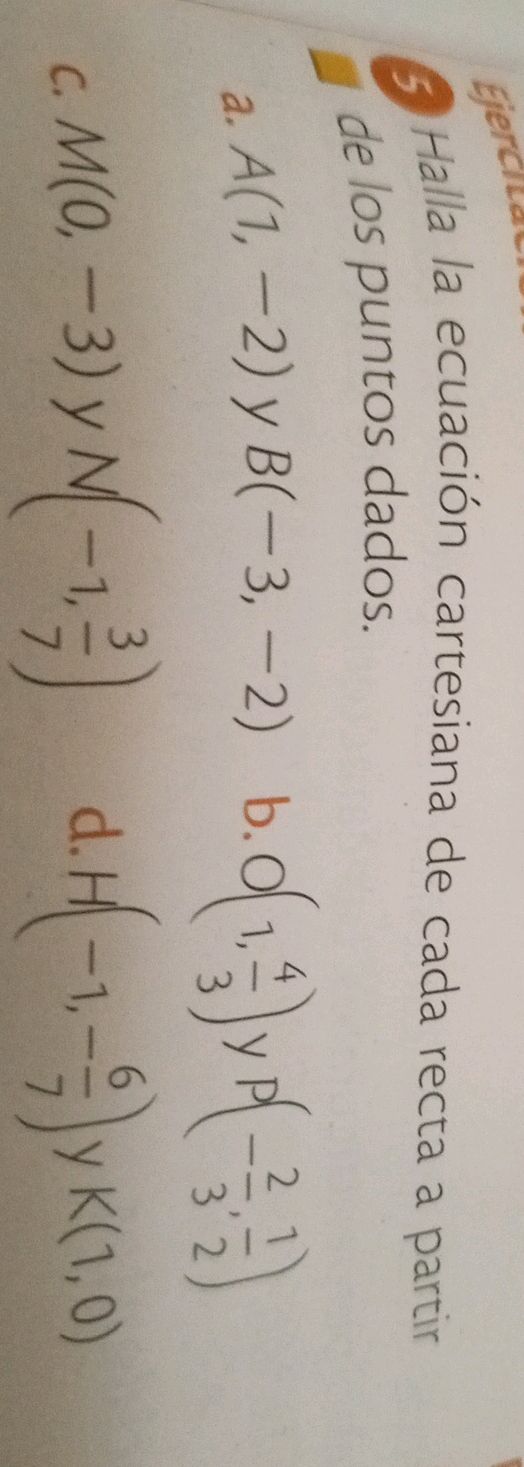 5 Halla la ecuación cartesiana de cada recta a partir
de los puntos dados.
a. A(1, −2) y B(−3, −2) b. O(1, 4/3) y P(−2/3, 1/2)
c. M(0, −3) y N(−1, 3/7) d. H(−1, −6/7) y K(1, 0)